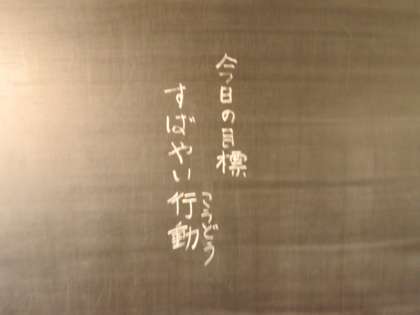 今日の目標
すばやい行動
こうどう